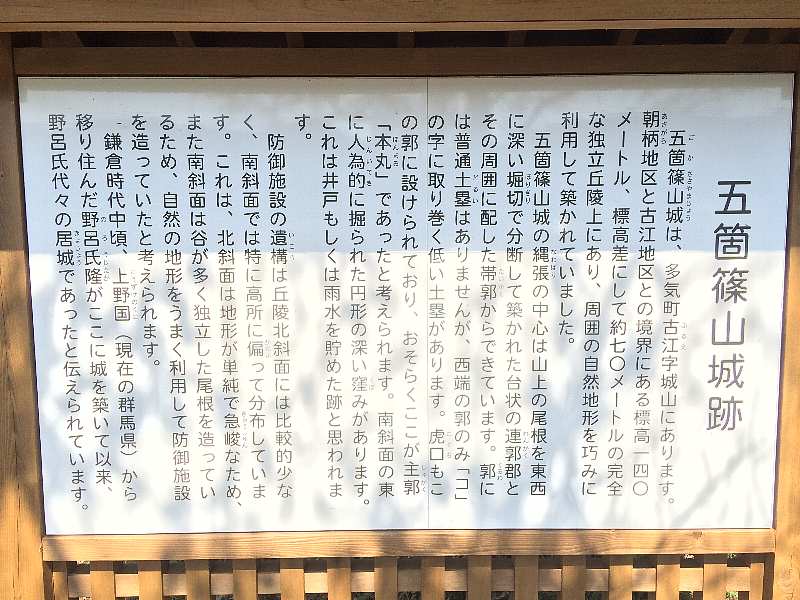 五箇篠山城跡
五箇篠山城は、多気町古江字城山にあります。
朝柄地区と古江地区との境界にある標高一四〇
メートル、標高差にして約七〇メートルの完全
な独立丘陵上にあり、周囲の自然地形を巧みに
利用して築かれていました。
五箇篠山城の縄張の中心は山上の尾根を東西
に深い堀切で分断して築かれた台状の連郭郡と
その周囲に配した帯郭からできています。郭に
は普通土塁はありませんが、西端の郭のみ「コ」
の字に取り巻く低い土塁があります。虎口もこ
の郭に設けられており、おそらくここが主郭
「本丸」であったと考えられます。南斜面の東
に人為的に掘られた円形の深い窪みがあります。
これは井戸もしくは雨水を貯めた跡と思われま
す。
防御施設の遺構は丘陵北斜面には比較的少な
く、南斜面では特に高所に偏って分布していま
す。これは、北斜面は地形が単純で急峻なため、
また南斜面は谷が多く独立した尾根を造ってい
るため、自然の地形をうまく利用して防御施設
を造っていたと考えられます。
鎌倉時代中頃、上野国（現在の群馬県）から
移り住んだ野呂氏隆がここに城を築いて以来、
野呂氏代々の居城であったと伝えられています。